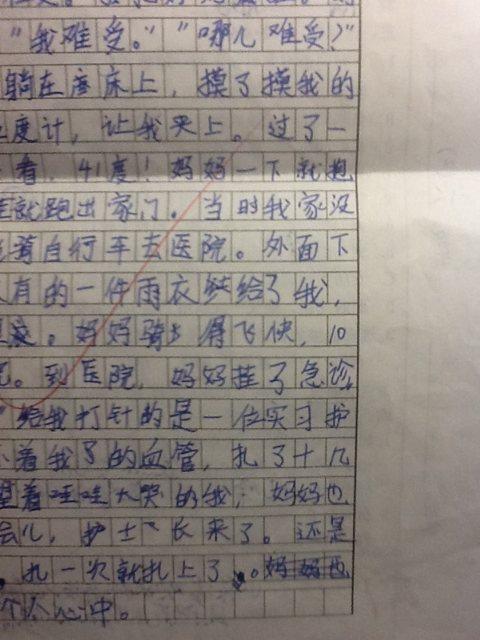 "我难受。""哪儿难受?"
躺在座床上，摸了摸我的
度计，让我夹上。过了一
看，41度！妈妈一下就抱
就跑出家门。当时我家没
着自行车去医院。外面下
有的一件雨衣给了我，
。妈妈骑得飞快，10
。到医院，妈妈挂了急诊，
给我打针的是一位实习护
着我了的血管，扎了十几
望着哇哇大哭的我，妈妈也
会儿，护士长来了。还是
。扎一次就扎上了。妈妈也
个人心中。